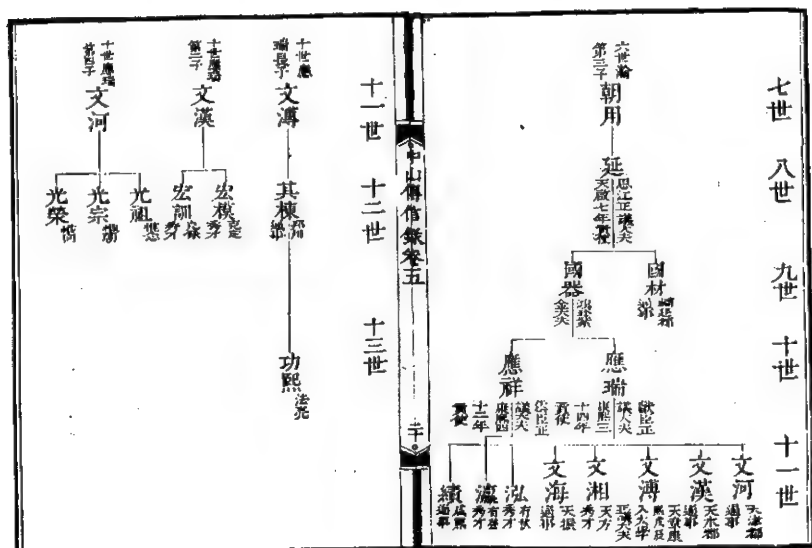 七世
八世
九世
十世
十一世
六世瀚
第三子
朝用
延
思江正議大夫
天啟七年貢使
國材
國器
紫
金大夫
應瑞
獻臣正
議大夫
康熙三
十四年
貢使
應祥
臣正
議大夫
康熙四
十二年
貢使
文河
天津都
通事
文漢
天水都
通事
文溥
天章康
入太學
正議大夫
文湘
天方
秀才
文海
天振
通事
泓
秀才
瀛
秀才
績
通事
中山傳信錄卷五
二十
十一世
十二世
十三世
十世應
瑞長子
文溥
其棟
通事
功熙
法亮
十世應瑞
第二子
文漢
宏模
秀才
宏訓
秀才
十世應瑞
第四子
文河
光祖
光宗
光榮